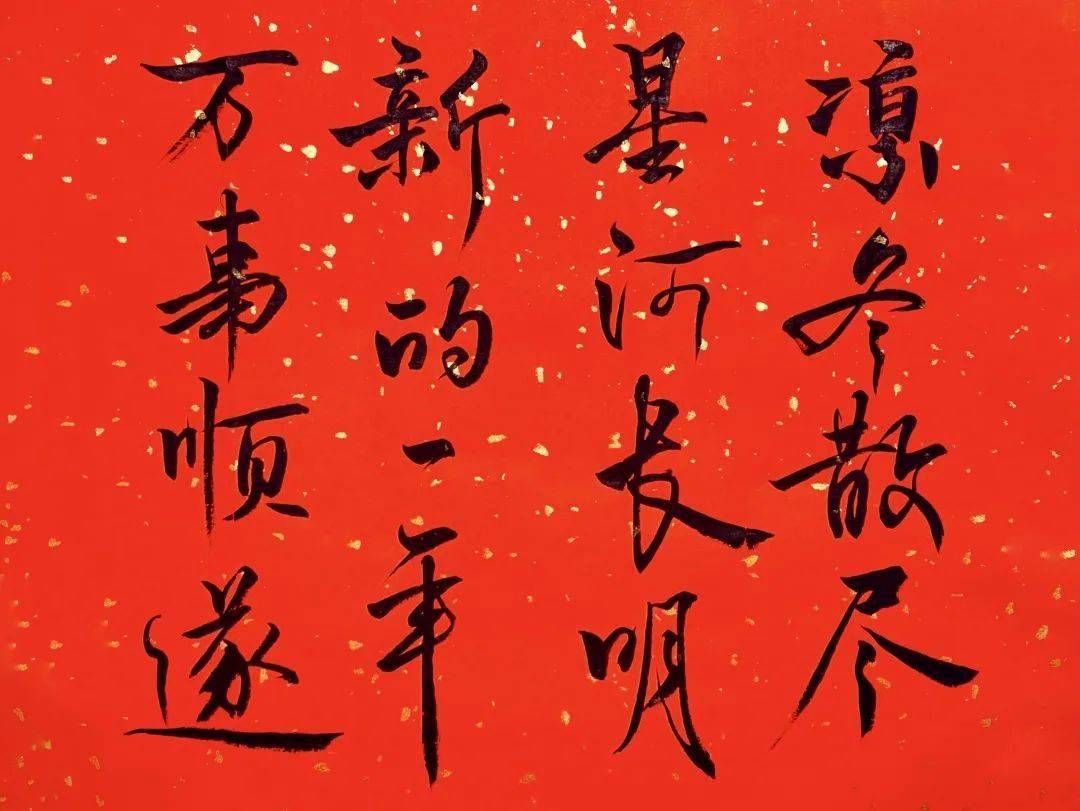 凉冬散尽
星河长明
新的一年
万事顺遂